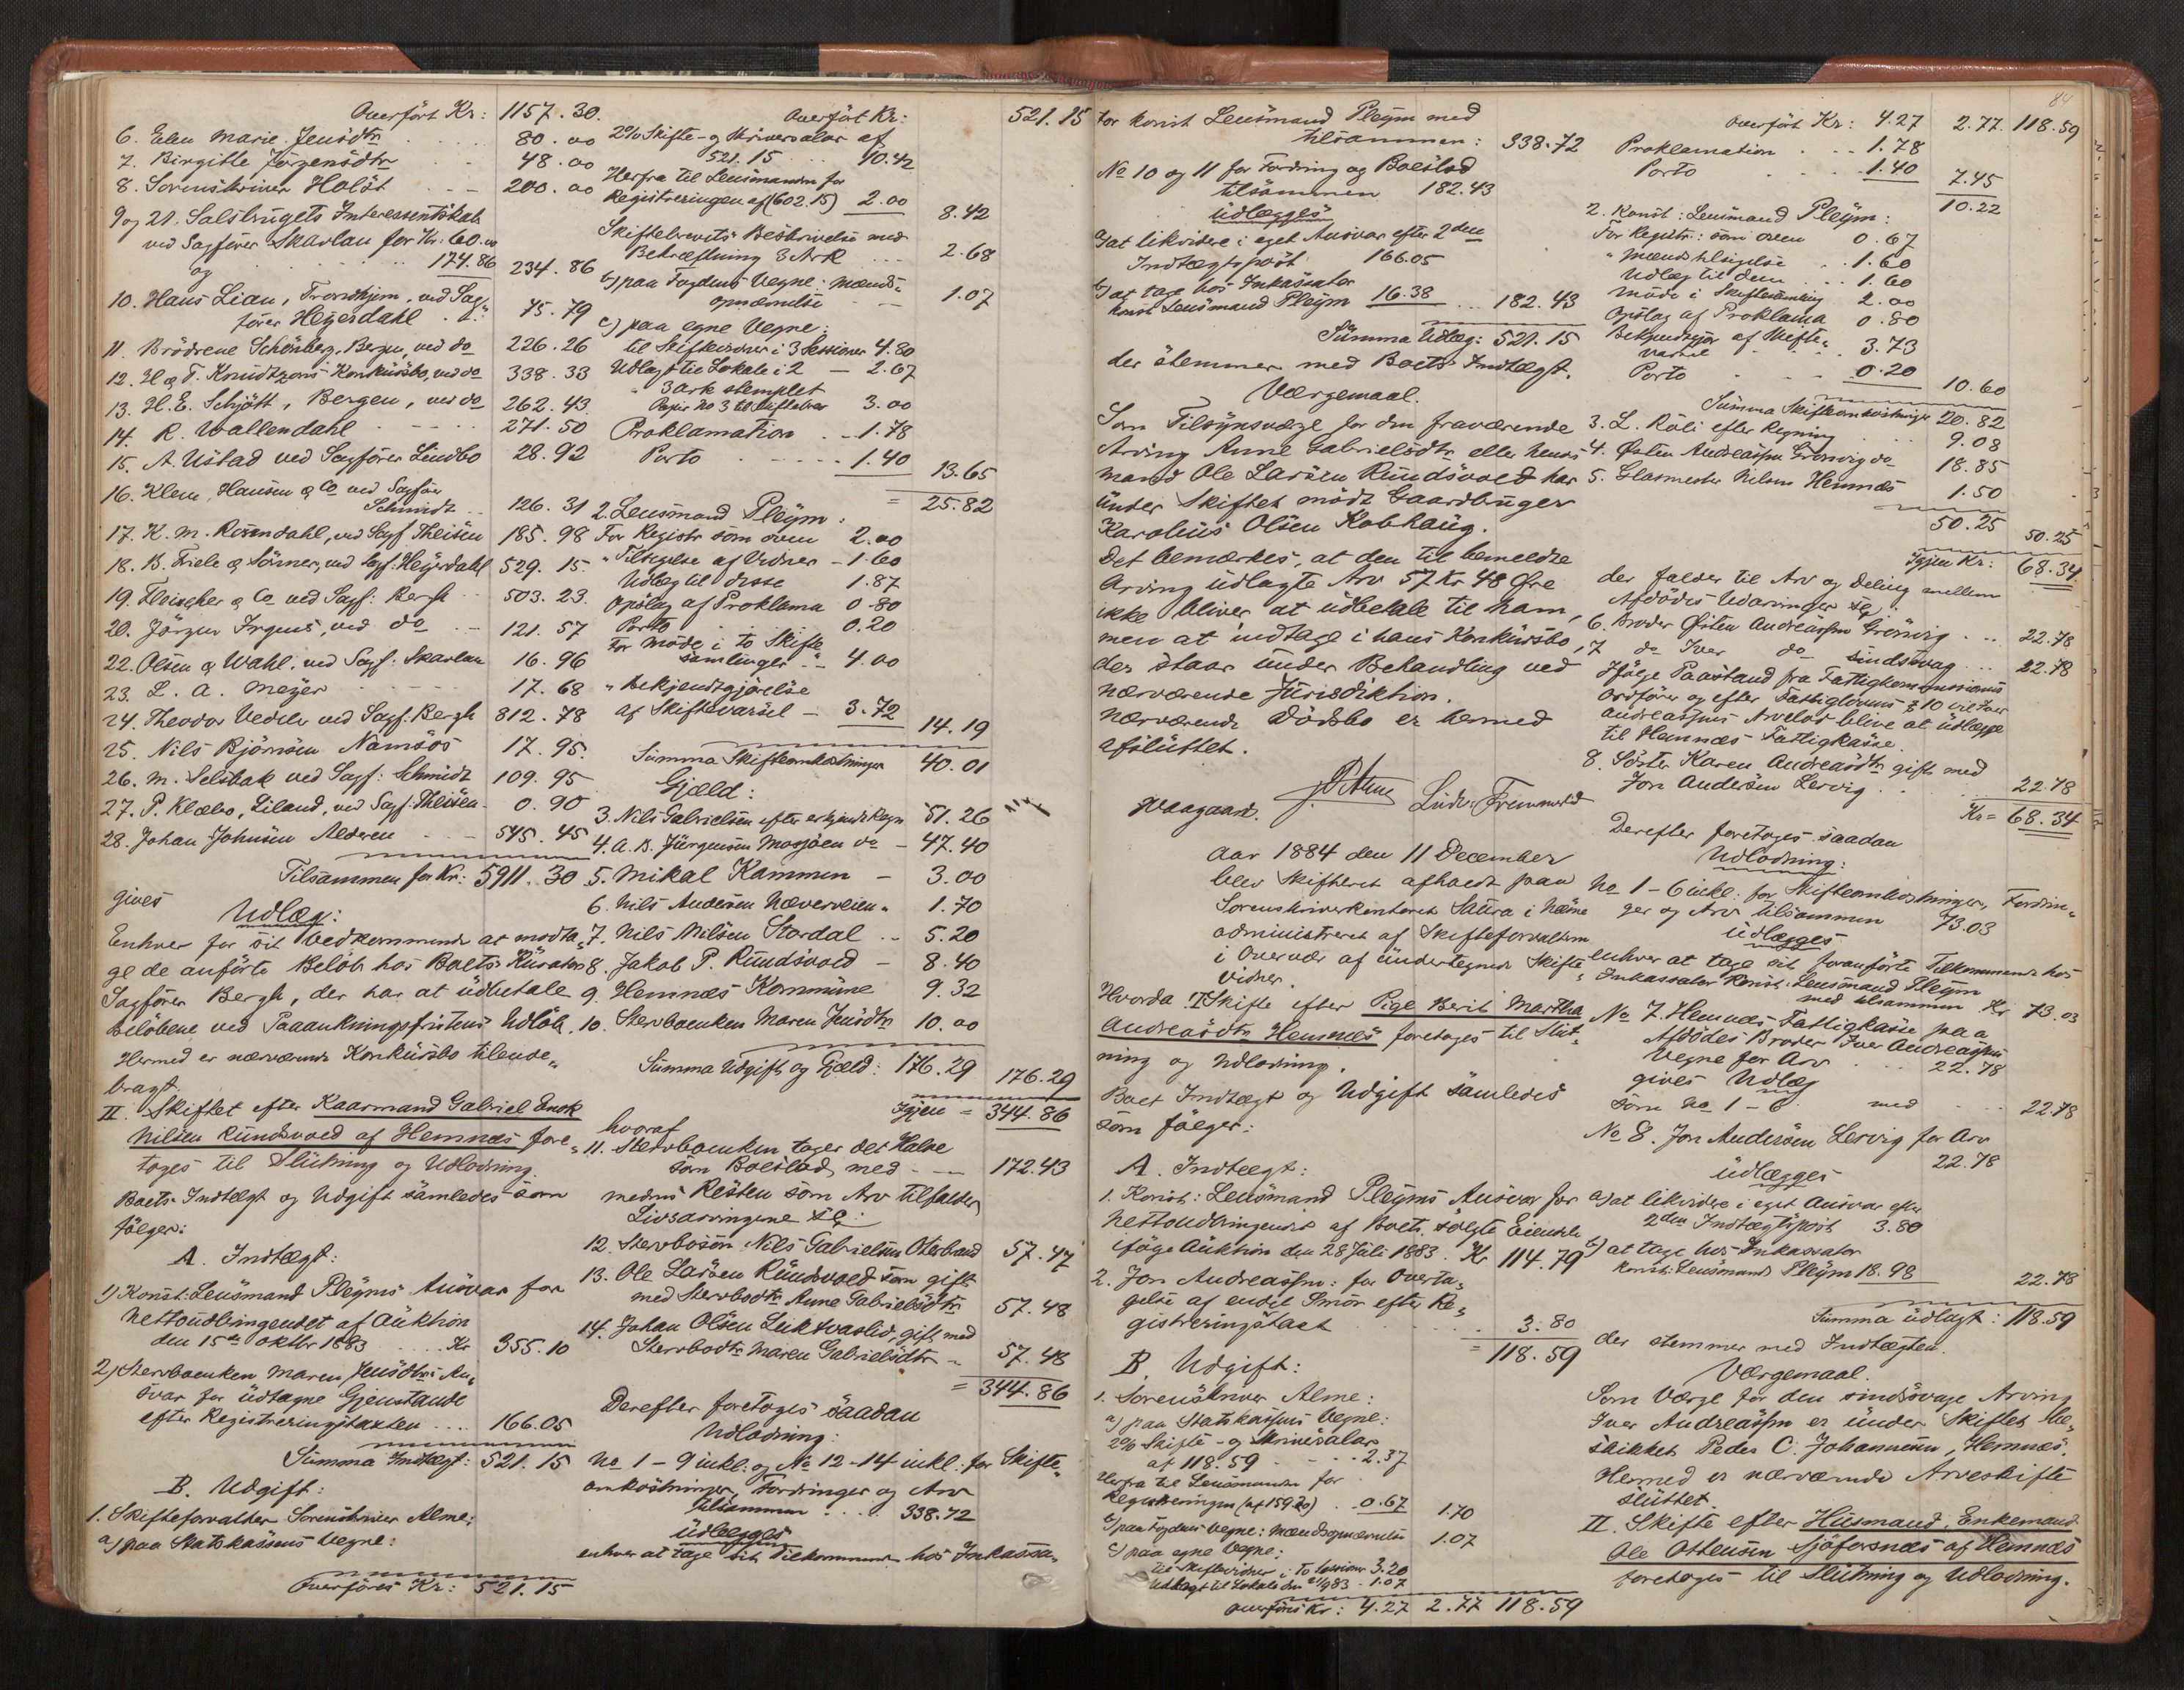 Overført Kr: 1157.30.
6. Elen Marie Jensdtr 80.00
7. Birgitte Jörgensdtr 48.00
8. Sorenskriver Holst 200.00
9 og 21. Salsbrugets Interessentskab
ved Sagfører Skavlan for Kr. 60.00
og 174.86 234.86
10. Hans Lian, Trondhjem, ved Sag-
fører Heyerdahl 75.79
11. Brödrene Schönberg, Bergen, ved do 226.26
12. H & F. Knudtzons Konkursbo, ved do 338.33
13. H. E. Schjött, Bergen, ved do 262.43
14. R. Wallendahl 271.50
15. A. Ustad ved Sagfører Lindbo 28.92
16. Klem, Hansen & Co ved Sagfører
Schmidt 126.31
17. K. M. Rosendahl, ved Sagf Theisen 185.98
18. B. Friele & Sönner, ved Sagf. Heyerdahl 529.15
19. Fleischer & Co ved Sagf: Bergh 503.23
20. Jörgen Irgens, ved do 121.57
22. Olsen & Wahl, ved Sagf: Skavlan 16.96
23. L. A. Meyer 17.68
24. Theodor Vedeler ved Sagf. Bergh 812.78
25. Nils Bjørnsen Namsos 17.95
26. M. Selsbak ved Sagf: Schmidt 109.95
27. P. Klæbo, Liland, ved Sagf. Theisen 0.90
28. Johan Johnsen Alderen 545.45
Tilsammen for Kr: 5911.30
gives
Udlæg:
Enhver for sit Vedkommende at modta-
ge de anførte Beløb hos Boets Kurator
Sagfører Bergh, der har at udbetale
beløbene ved Paaankningsfristens Udløb.
Hermed er nærværende Konkursbo tilende-
bragt.
II. Skiftet efter Kaarmand Gabriel Enok
Nilsen Rundsvold af Hemnæs fore-
tages til Slutning og Udlodning.
Boets Indtægt og Udgift saaledes som
følger:
A. Indtægt:
1) Konst: Lensmand Pleyms Ansvar for
Nettoudbringendet af Auktion
den 15de Oktbr 1883 Kr 355.10
2) Stervboenken Maren Jensdtrs An-
svar for udtagne Gjenstande
efter Registreringstaxten 166.05
Summa Indtægt: 521.15
B. Udgift:
1. Skifteforvalter Sorenskriver Alme:
a) paa Statskassens Vegne:
Overføres Kr: 521.15
Overført Kr: 521.15
2% Skifte- og Skriversalar af
521.15 10.42
Herfra til Lensmanden for
Registreringen af (602.15) 2.00 8.42
Skiftebrevets Beskrivelse med
Bekræftning 3 Ark 2.68
b) paa Fogdens Vegne: Mænds-
opnævnelse 1.07
c) paa egne Vegne:
til Skiftevidner i 3 Sessioner 4.80
Udlagt til Lokale i 2 — 2.67
" 3 ark stemplet
Papir No 3 til Skiftebrev 3.00
Proklamation 1.78
Porto 1.40 13.65
= 25.82
2. Lensmand Pleym:
For Registr: som oven 2.00
" Tilsigelse af Vidner 1.60
Udlæg til disse 1.87
Opslag af Proklama 0.80
Porto 0.20
For Møde i to Skifte
samlinger 4.00
" Bekjendtgjørelse
af Skiftevarsel 3.72 14.19
Summa Skifteomkostninger 40.01
Gjæld:
3. Nils Gabrielsen efter erkjendt Regn 51.26
4. A. B. Jürgensen Mosjøen do 47.40
5. Mikal Kammen 3.00
6. Nils Andersen Næverveien 1.70
7. Nils Nilsen Stordal 5.20
8. Jakob P. Rundsvold 8.40
9. Hemnæs Kommune 9.32
10. Stervboenken Maren Jensdtr 10.00
Summa Udgift og Gjæld: 176.29 176.29
Igjen = 344.86
hvoraf
11. Stervboenken tager det Halve
som Boeslod, med 172.43
medens Resten som Arv tilfalder
Livsarvingerne
12. Stervbosøn Nils Gabrielsen Oterbrand 57.47
13. Ole Larsen Rundsvold som gift
med Stervbodtr Anne Gabrielsdtr 57.48
14. Johan Olsen Luktvaslid, gift med
Stervbodtr Maren Gabrielsdtr 57.48
= 344.86
Derefter foretoges saadan
Udlodning:
No 1 – 9 inkl: og No 12–14 inkl. for Skifte-
omkostninger, Fordringer og Arv
tilsammen 338.72
udlægges
enhver at tage sit Tilkommende hos Inkassa-
84
tor konst Lensmand Pleym med
tilsammen: 338.72
No 10 og 11 for Fordring og Boeslod
tilsammen 182.43
udlægges
a) at likvidere i eget Ansvar efter 2den
Indtægtspost 166.05
b) at tage hos Inkassator
konst Lensmand Pleym 16.38 182.43
Summa Udlæg: 521.15
der stemmer med Boets Indtægt.
Værgemaal.
Som Tilsynsværge for den fraværende
Arving Anne Gabrielsdtr eller hendes
mand Ole Larsen Rundsvold har
under Skiftet mødt Gaardbruger
Karolius Olsen Kobhaug.
Det bemærkes, at den til bemeldte
Arving udlagte Arv 57 Kr 48 Øre
ikke bliver at udbetale til ham,
men at indtage i hans Konkursbo,
der staar under Behandling ved
nærværende Jurisdiktion.
Nærværende Dödsbo er hermed
afsluttet.
JAlme
Aar 1884 den 11 December
blev Skifteret afholdt paa
Sorenskriverkontoret Sattra i Hemnæs
administreret af Skifteforvalteren
i Overvær af undertegnede Skifte-
vidner.
Hvorda: I Skifte efter Pige Berit Martha
Andreasdtr Hemnæs foretages til Slut-
ning og Udlodning.
Boets Indtægt og Udgift saaledes
som følger:
A. Indtægt:
1. Konst: Lensmand Pleyms Ansvar for
Nettoudbringendet af Boets solgte Eiendele
ifølge Auktion den 28 Juli 1883. Kr 114.79
2. Jon Andreassen: for Overta-
gelse af endel Smør efter Re-
gistreringstaxt 3.80
= 118.59
B. Udgift:
1. Sorenskriver Alme:
a) paa Statskassens Vegne:
2% Skifte- og Skriversalar
af 118.59 2.37
Herfra til Lensmanden for
Registreringen (af 159.20) 0.67 1.70
b) paa Fogdens Vegne: Mændsopnævnelse 1.07
c) paa egne Vegne:
til Skiftevidner i to Sessioner 3.20
Udlagt til Lokale 1.07
overføres Kr: 4.27 2.77 118.59
Overført Kr: 4.27 2.77 118.59
Proklamation 1.78
Porto 1.40 7.45
10.22
2. Konst: Lensmand Pleym:
For Registr: som oven 0.67
" Mændstilsigelse 1.60
Udlæg til dem 1.60
Møde i Skiftesamling 2.00
Opslag af Proklama 0.80
Bekjendtgjør af Skifte-
varsel 3.73
Porto 0.20 10.60
Summa Skifteomkostninger 20.82
3. L. Röli efter Regning 9.08
4. Østen Andreassen Grønvig do 18.85
5. Glasmester Nilsen Hemnæs 1.50
50.25 50.25
Igjen Kr: 68.34
der falder til Arv og Deling mellem
Afdödes Udarvinger
6. Broder Østen Andreassen Grønvig 22.78
7 do Iver do sindssvag 22.78
Ifølge Paastand fra Fattigkommissionens
Ordfører og efter Fattiglovens § 10 vil Iver
Andreassens Arvelod blive at udlægge
til Hemnæs Fattigkasse.
8. Söster Karen Andreasdtr gift med
Jon Andersen Lervig 22.78
Kr = 68.34
Derefter foretoges saadan
Udlodning:
No 1 – 6 inkl. for Skifteomkostninger, Fordrin-
ger og Arv tilsammen 73.03
udlægges
enhver at tage sit foranførte Tilkommende hos
Inkassator Konst: Lensmand Pleym
med tilsammen Kr 73.03
No 7. Hemnæs Fattigkasse paa
Afdödes Broder Iver Andreassens
Vegne for Arv 22.78
gives Udlæg
som No 1 – 6 med 22.78
No 8. Jon Andersen Lervig for Arv
22.78
udlægges
a) at likvidere i eget Ansvar efter
2den Indtægtspost 3.80
b) at tage hos Inkassator
konst: Lensmand Pleym 18.98 22.78
Summa udlagt: 118.59
der stemmer med Indtægten.
Værgemaal.
Som Værge for den sindssvage Arving
Iver Andreassen er under Skiftet be-
skikket Peder C. Johannesen, Hemnæs.
Hermed er nærværende Arveskifte
sluttet.
II. Skifte efter Husmand, Enkemand
Ole Ottensen Sjöforsnæs af Hemnæs
foretages til Slutning og Udlodning.